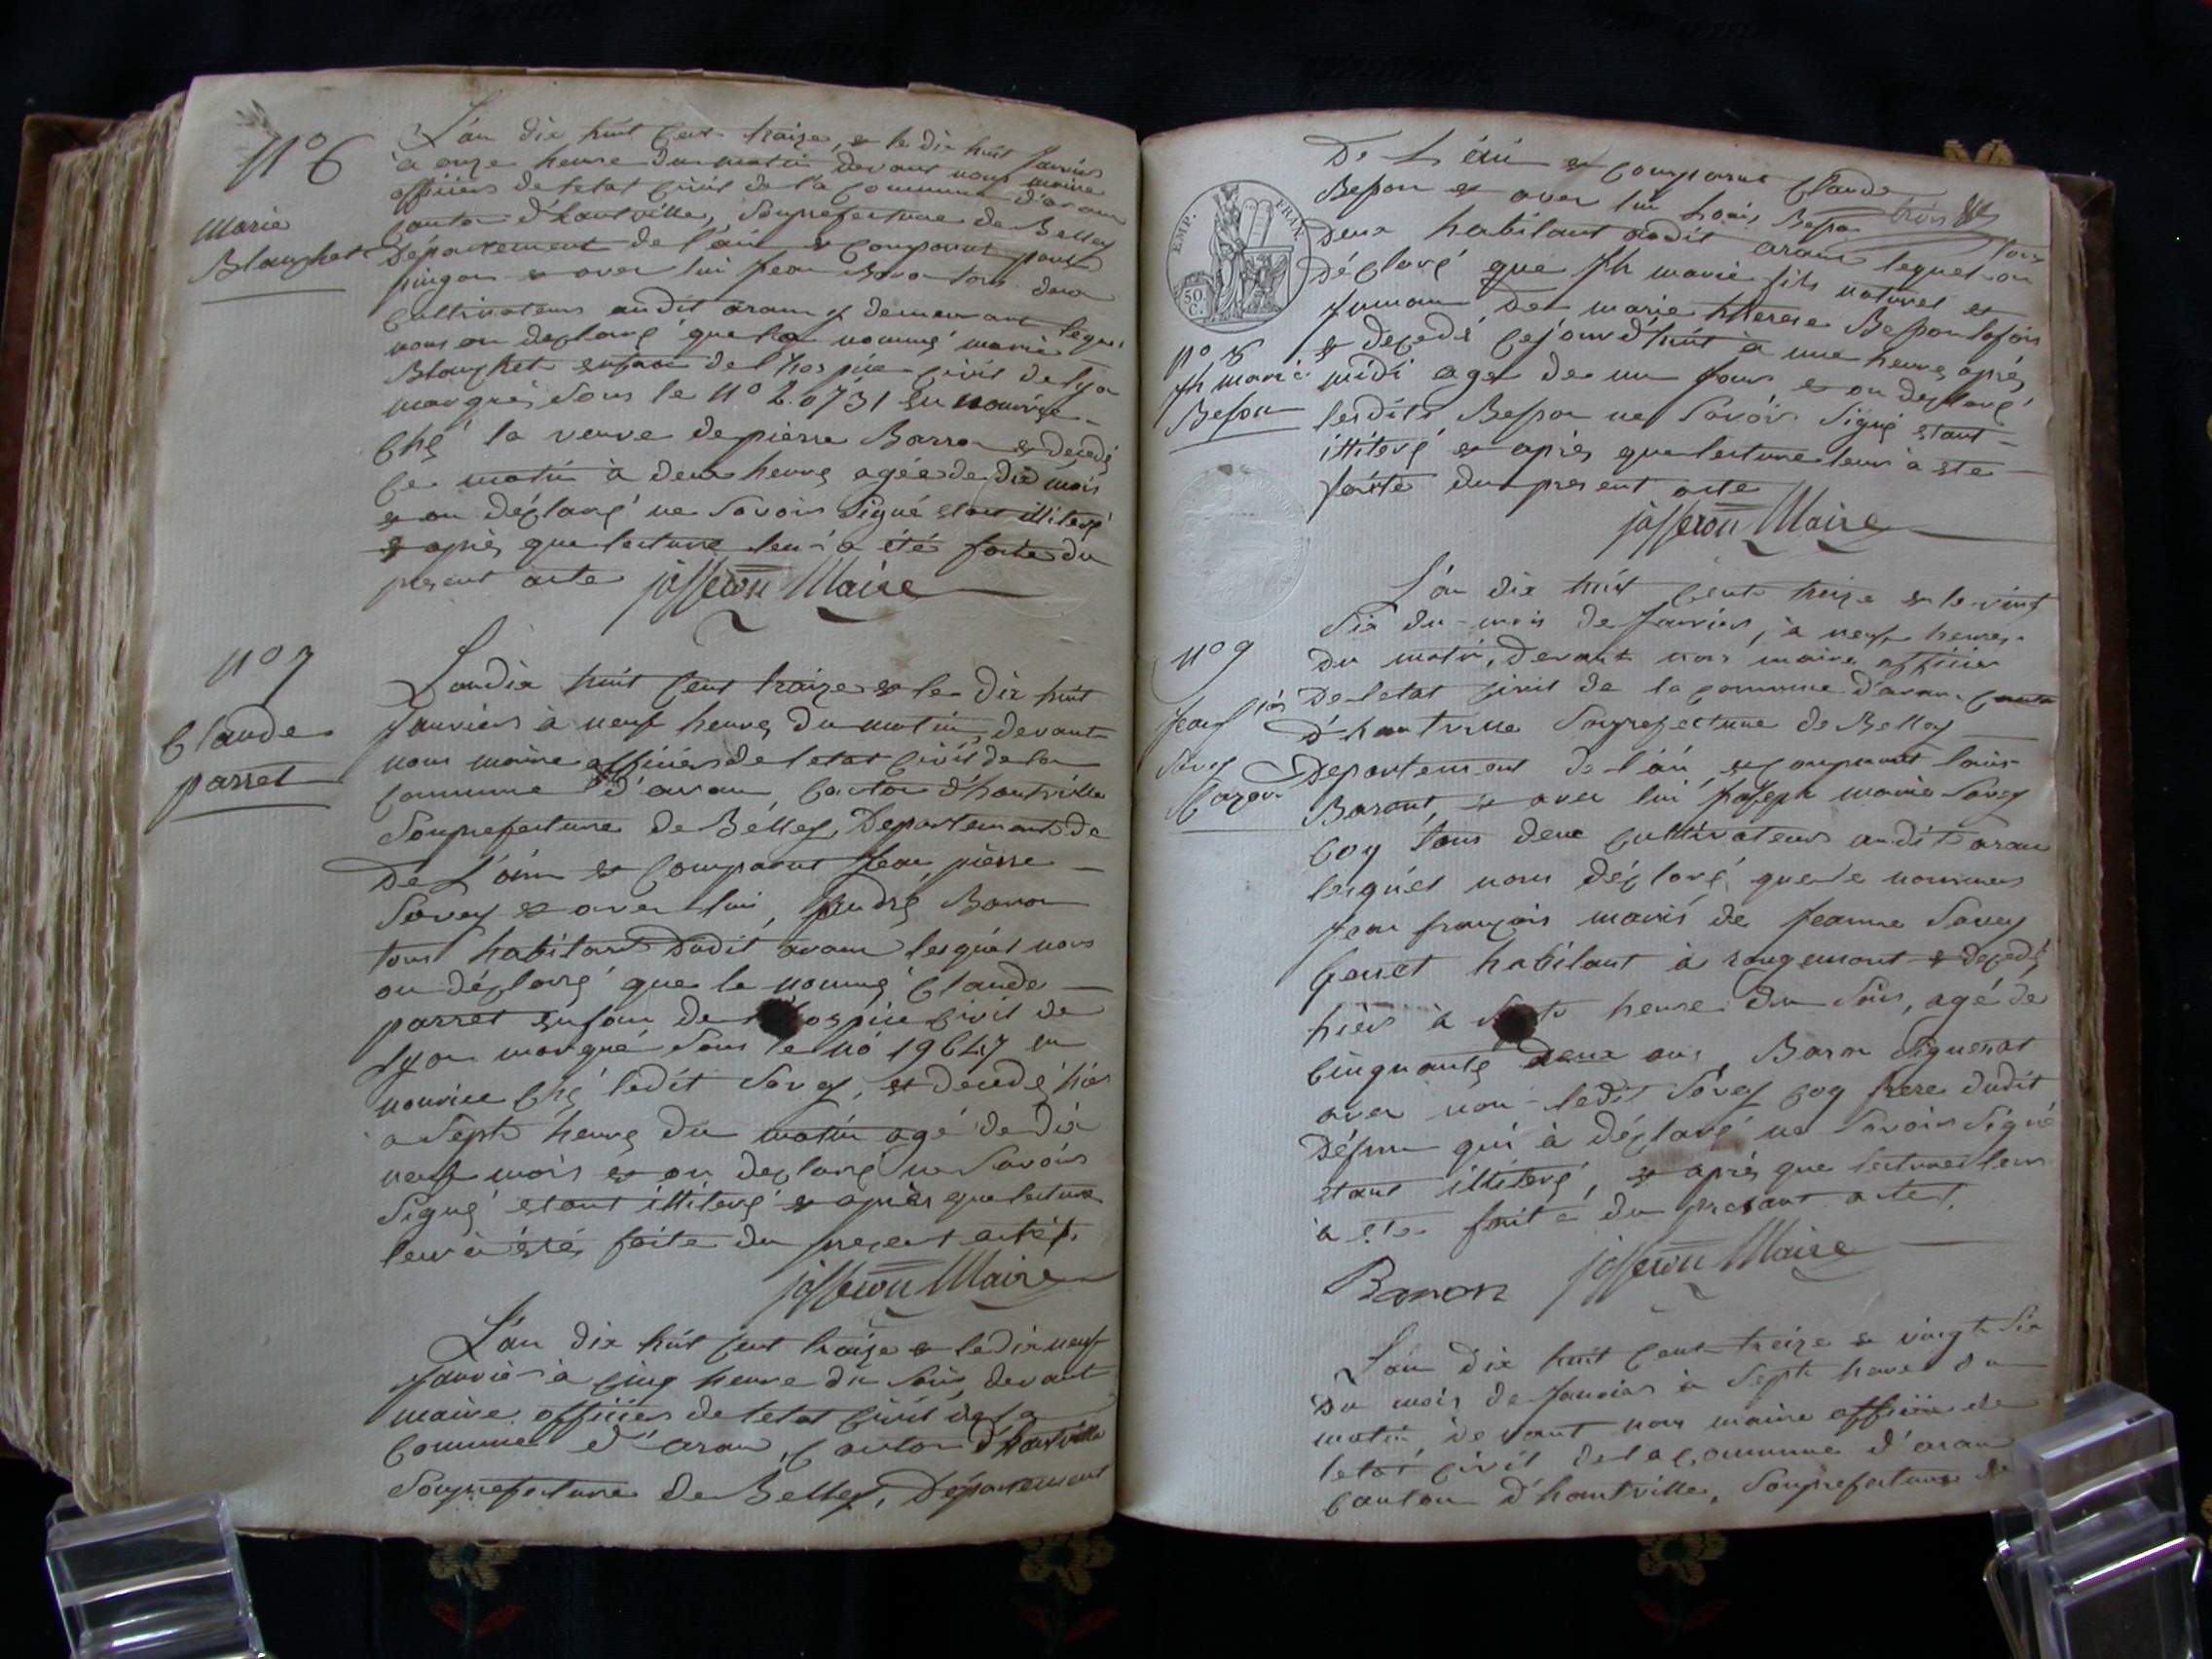 N° 6
Marie
Blanchet
L'an dix huit cent traize, et le dix huit Janvier
à onze heure du matin devant nous maire
officiers de letat civil de la commune d'aran
canton d'hautville, Souprefecture de Belley
Département de l'ain est comparut
pingon et avec lui Jean Baron tous deux
cultivateurs audit aran y demeurant lequel
nous on déclaré que la nommé marie
Blanchet enfant de l'hospice civil de lyon
marqués Sous le N° 20731 en nourrise
ché la veuve de pierre Barron est decedé
ce matin à deux heures agée de dix mois
et on déclaré ne Savoir Signé etant illiteré
et après que lecture leur a été faite du
present acte josseron Maire
N° 7
Claude
parret
L'an dix huit cent traize et le dix huit
Janviers à neuf heures du matin, devant
nous maire officiers de letat civil de la
commune d'aran, canton d'hautville
Souprefecture de Belley, Departement de
De L'ain est comparut Jean pierre
Savey et avec lui, André Baron
tous habitant dudit aran lesquel nous
on déclaré que le nommé Claude
parret enfan de hospice civil de
lyon marqué Sous le No 19647 en
nourice ché ledit Savey, est decedé hier
a Septs heures du matin agé de dix
neuf mois et on déclaré ne Savoir
Signé etant illiteré et après que lecture
leur à étés faite du present acte
josseron Maire
L'an dix huit cent traize et le dix neuf
Janvier à cinq heure du Soir, devant
maire officiers de letat civil de la
commune d'aran, canton d'hautville
Souprefecture de Belley, Département
De L'ain est comparut Claude
Besson et avec lui Besson
Deux habitant audit aran lequel on
déclaré que Jh marie fils naturel et
de marie therese Besson
est decedé cejourd'huit à une heures après
midi age de un Jour et on déclaré
lesdits Besson ne Savoir Signé etant
illiteré et après que lecture leurs à ete
faitte du present acte
josseron Maire
EMP. FRAN.
50 C.
N° 8
Jh marie
Besson
L'an dix huit cent treize et le vint
Six du mois de Janvier, à neuf heures
du matin, devant nous maire officier
De letat civil de la commune d'aran canton
D'hautville Souprefecture de Belley
Departement de l'ain, est comparut louis
Baront, et avec lui Joseph marie Savey
Coy tous deux cultivateurs audit aran
lesquel nous déclaré que le nommés
Jean françois mariés de Jeanne Savey
habitant à rougemont est decedé
hier à heure du Soir, agé de
cinquante deux ans, Baron Signerat
avec nou ledit Savey Coy frere dudit
Défun qui à déclaré ne Savoir Signé
etant illiteré, et après que lecture leur
à ete faite du presant acte
Baron josseron Maire
N° 9
Jean fois
Savey
L'an dix huit cent treize et vingt Six
Du mois de Janvier à Septs heures du
matin devant nous maire officier de
letat civil de la commune d'aran
canton d'hautville, Souprefecture de